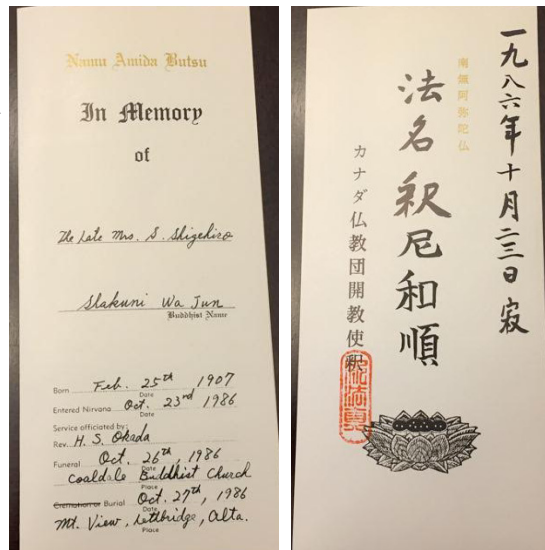 Namu Amida Butsu
In Memory
of
The Late Mrs. S. Shigehiro
Shakuni Wa Jun
Buddhist Name
Born Feb. 25th 1907
Date
Entered Nirvana Oct. 23rd 1986
Date
Service officiated by:
Rev. H. S. Okada
Funeral Oct. 26th, 1986
Date
Coaldale Buddhist Church
Place
Cremation or Burial Oct. 27th, 1986
Date
Mt. View, Lethbridge, Alta.
Place
一九八六年十月二三日寂
南無阿弥陀仏
法名 釈尼和順
カナダ仏教団開教使釈